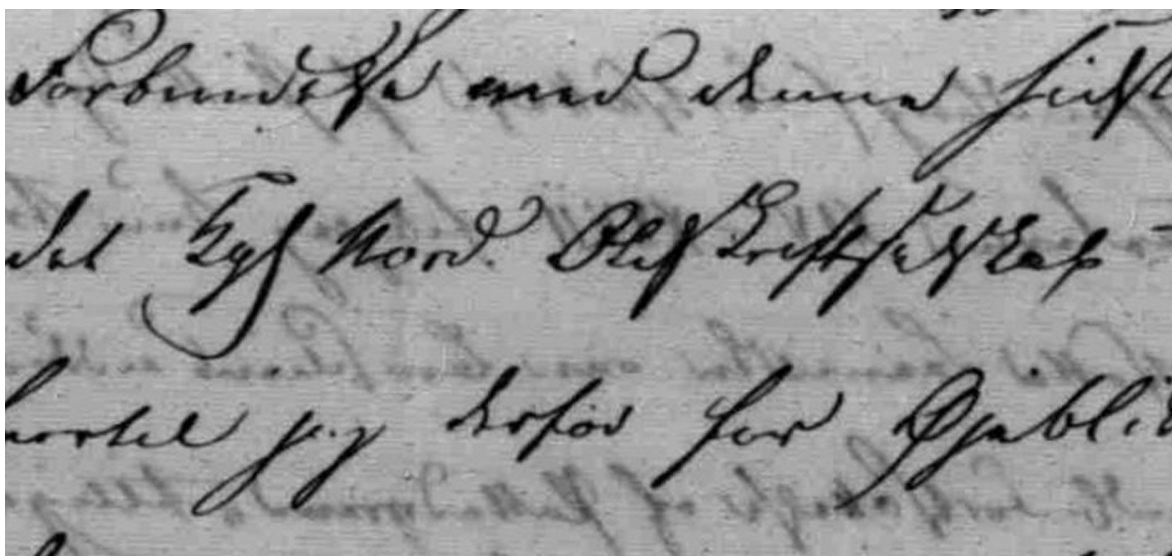 Forbindelse med denne sidst
det Kgl Nord. Oldskriftselskab
hvortil jeg derfor for Øjeblik